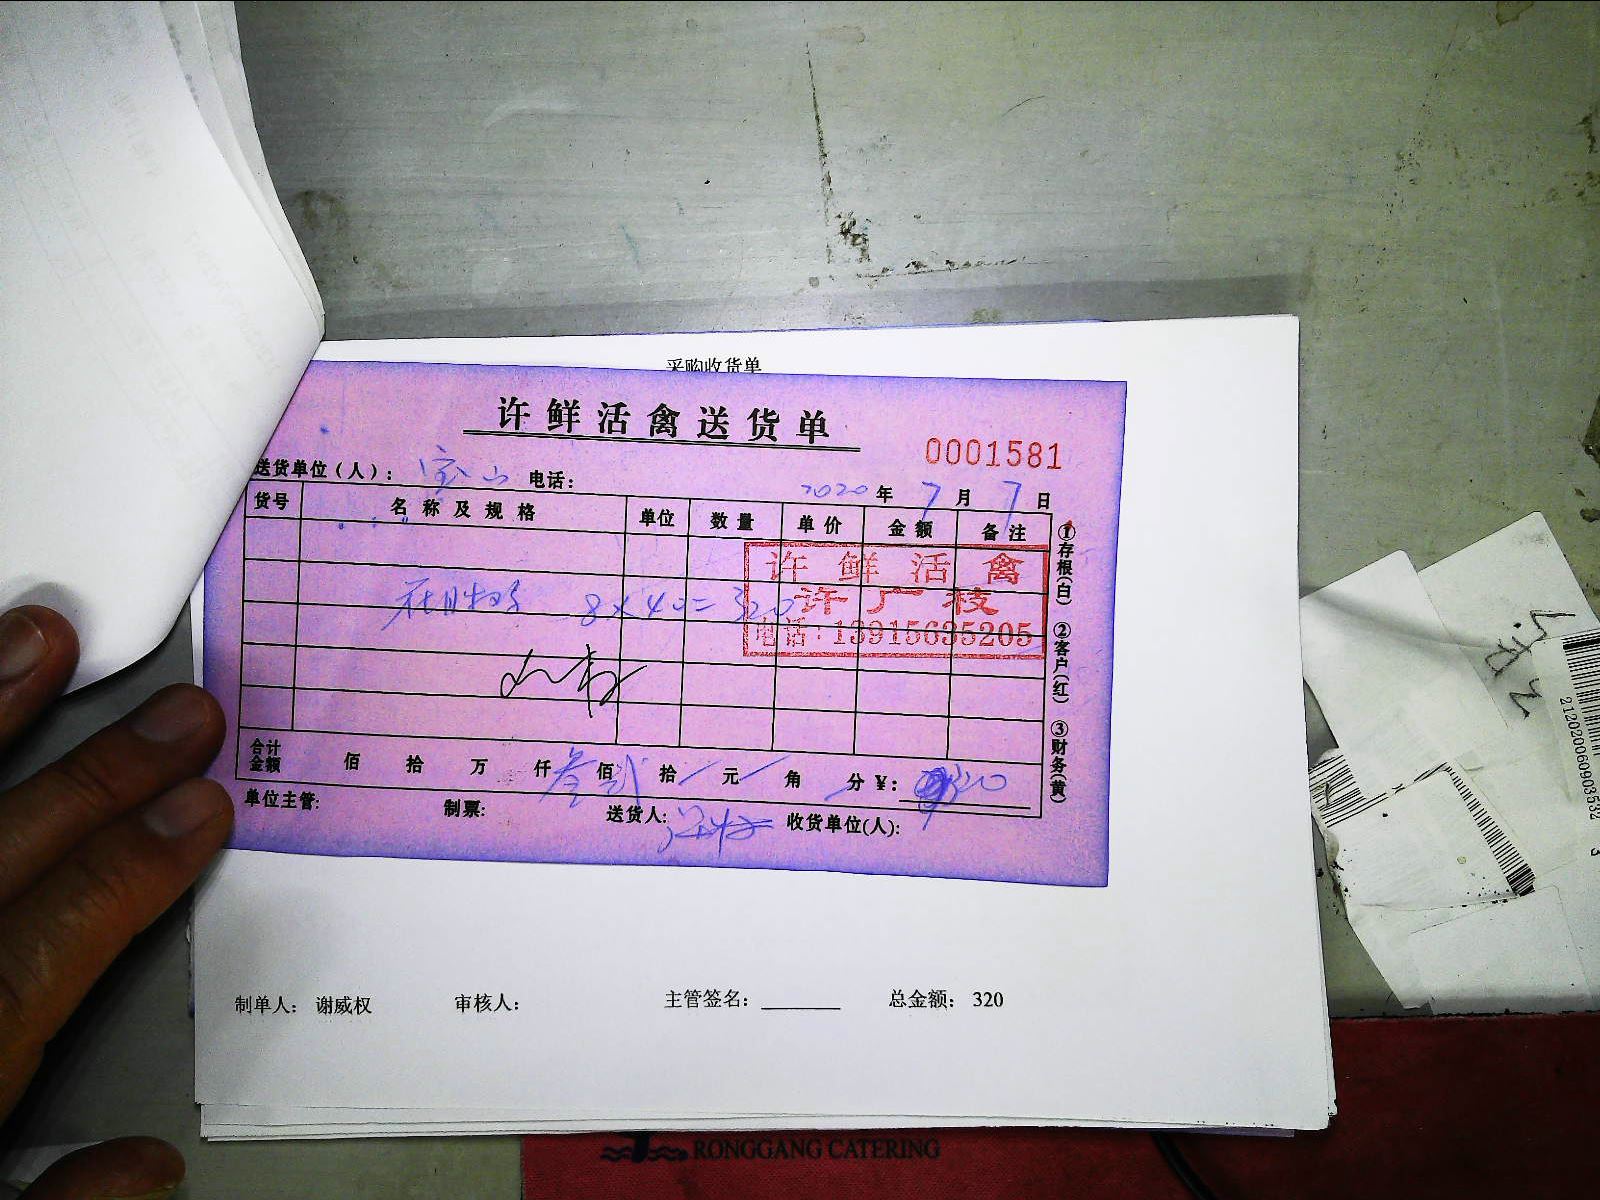 采购收货单
许鲜活禽送货单
0001581
送货单位(人): 宝山 电话: 2020年7月7日
货号 名称及规格 单位 数量 单价 金额 备注
许鲜活禽
许广枝
电话:13915635205
8×40=320
合计金额 佰 拾 万 仟 叁佰 贰拾 元 角 分 ¥: 320
单位主管: 制票: 送货人: 收货单位(人):
①存根(白) ②客户(红) ③财务(黄)
制单人: 谢威权 审核人: 主管签名: 总金额: 320
RONGGANG CATERING